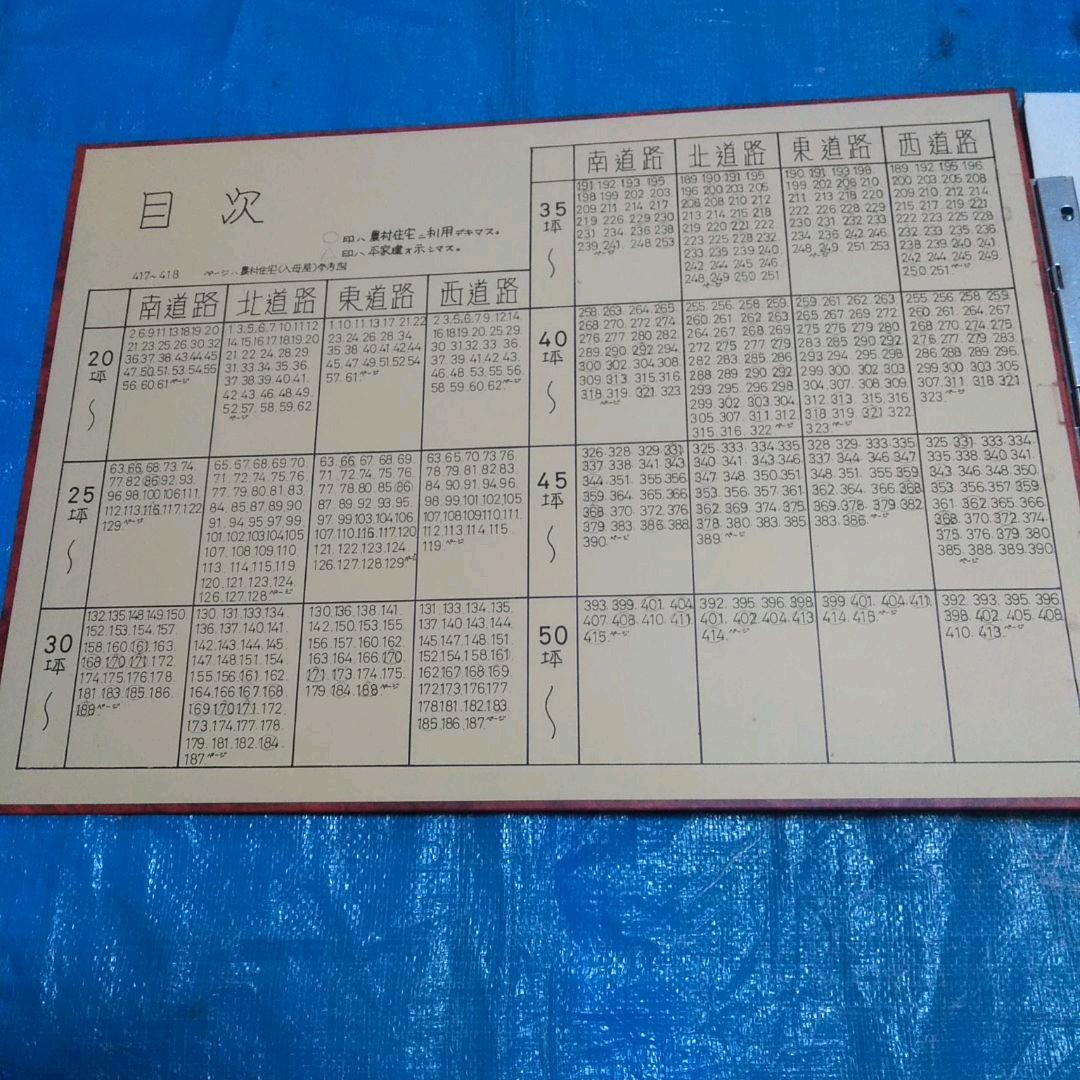 目次
○印ハ農村住宅ニ利用デキマス。
△印ハ平家建ヲ示シマス。
417~418 ページハ農村住宅(入母屋)参考図
南道路 北道路 東道路 西道路
20坪~
2.6.9.11.13.18.19.20
21.23.25.26.30.32
36.37.38.43.44.45
47.50.51.53.54.55
56.60.61ページ
1.3.5.6.7.10.11.12
14.15.16.17.18.19.20
21.22.24.28.29
31.33.34.35.36.
37.38.39.40.41.
42.43.46.48.49.
52.57.58.59.62
ページ
1.10.11.13.17.21.22
23.24.26.28.34
35.38.40.41.42.44
45.47.49.51.52.54
57.61ページ
2.3.5.6.7.9.12.14.
16.18.19.20.25.29
30.31.32.33.36.
37.39.41.42.43.
46.48.53.55.56.
58.59.60.62ページ
25坪~
63.66.68.73.74.
77.82.86.92.93.
96.98.100.106.111.
112.113.116.117.122
129ページ
65.67.68.69.70
71.72.74.75.76.
77.79.80.81.83.
84.85.87.89.90
91.94.95.97.99
101.102.103.104.105
107.108.109.110
113.114.115.119
120.121.123.124.
126.127.128ページ
63.66.67.68.69.
71.72.74.75.76
77.78.80.85.86
87.89.92.93.95
97.99.103.104.106
107.110.116.117.120
121.122.123.124
126.127.128.129ページ
63.65.70.73.76
78.79.81.82.83.
84.90.91.94.96
98.99.101.102.105
107.108.109.110.111.
112.113.114.115.
119ページ
30坪~
132.135.148.149.150.
152.153.154.157.
158.160.161.163.
168.170.171.172.
174.175.176.178
181.183.185.186.
188ページ
130.131.133.134.
136.137.140.141.
142.143.144.145.
147.148.151.154
155.156.161.162.
164.166.167.168.
169.170.171.172.
173.174.177.178.
179.181.182.184.
187ページ
130.136.138.141.
142.150.153.155
156.157.160.162.
163.164.166.170.
171.173.174.175.
179.184.188ページ
131.133.134.135.
137.140.143.144.
145.147.148.151
152.154.158.161.
162.167.168.169
172.173.176.177
178.181.182.183
185.186.187ページ
南道路 北道路 東道路 西道路
35坪~
191 192 193 195
198 199 202 203
209 211. 214 217
219 226 229 230
231 234 236 238
239 241. 248 253
ページ
189 190 191 195
196 200 203 205
206 208 210 212
213 214 215 218
219 220 221 222
223 225 228 232
233 235 239 240
242 244 245 246.
248 249 250 251
ページ
190 191 193 198
199. 202 206 210
211. 213 218 220
222 226 228 229
230 231 232 233
234 236 242 246
248 249 251 253
ページ
189 192 195 196
200 203 205 208
209 210. 212 214
215 217. 219 221
222 223 225 228
232 233 235 236.
238 239 240 241
242 244 245 249
250 251ページ
40坪~
258 263 264. 265
268 270. 272. 274
276. 277 280 282
289 290 292 294.
300 302. 304.308
309 313 315.316.
318.319. 321. 323
ページ
255 256. 258 259.
260.261.262.263
264.267.268 269
272. 275 277 279
282 283 285 286
288 289 290 292
293 295 296 298
299 302 303 304.
305 307. 311. 312
315. 316. 322ページ
259 261 262. 263
265 267 269 272
275 276 279 280
283 285 290 292.
293 294 295 298
299 300 302 303
304.307.308 309.
312.313.315.316
318 319 321 322
323ページ
255 256 258 259.
260 261.264.267.
268 270. 274 275.
276. 277. 279 283.
286 288 289 296.
299 300 303 305
307.311. 318 321.
323ページ
45坪~
326.328.329.331
337.338.341.343
344.351.355 356
359.364.365.366
368.370.372.376
379.383.386.388
390.ページ
325.333.334.335
340.341.343.346
347.348.350.351
353.356.357.361
362.369.374.375.
378.380.383.385
389.ページ
328.329.333.335
337.343.346.347
348.351.355.359
362.364.366.368
369.378.379.382
383.386.ページ
325.331.333.334.
335.338.340.341.
343.346.348.350
353.356.357.359.
361.362.365.366
368.370.372.374.
375.376.379.380
385.388.389.390.
ページ
50坪~
393.399.401.404
407.408.410.411
415.ページ
392.395.396.398
401.402.404.413
414.ページ
399.401.404.411.
414.415.ページ
392.393.395.396
398.402.405.408
410.413.ページ